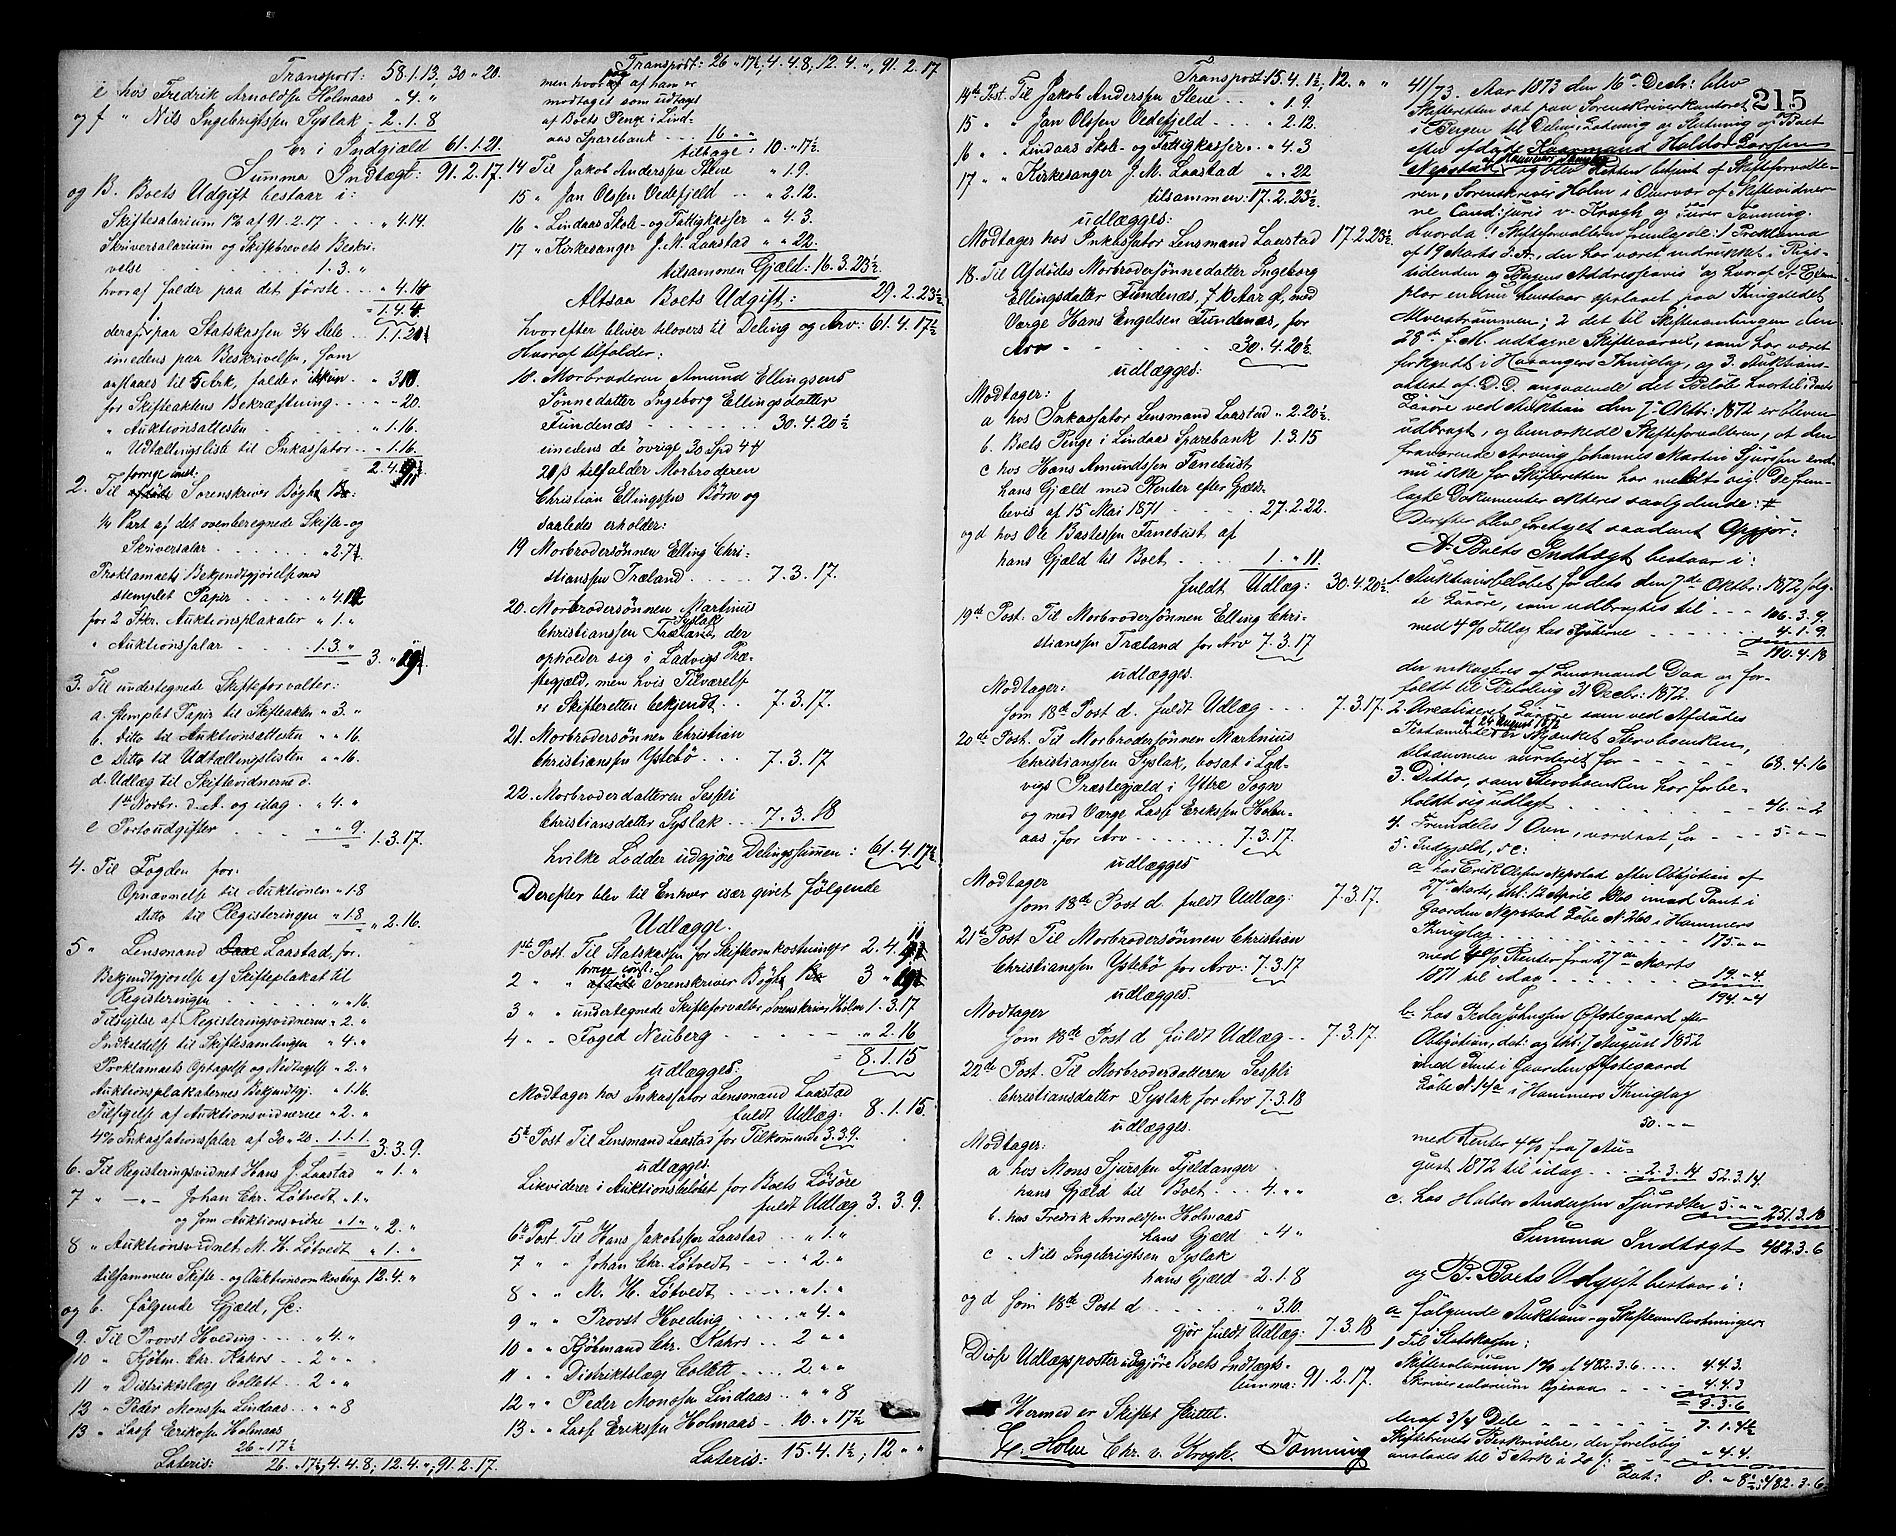 Transport: 58.1.13, 30 " 20.
e hos Fredrik Arnoldsen Holmaas " 4. "
og f " Nils Ingebrigtsen Syslak - 2.1.8
Er i Indgjæld 61.1.21.
Summa Indtægt: 91.2.17.
og B. Boets Udgift bestaar i:
Skiftesalarium 1% af 91.2.17 - - " 4.14.
Skriversalarium og Skiftebrevets Beskri-
velse . . . . . 1.3. "
hvoraf falder paa det første . . . " 4.14
1.4.4
deraf paa Statskassen 3/4 Dele . . 1.1.20
imedens paa Beskrivelsen, som
anslaaes til 5 Ark, falder
for Skifteaktens Bekræftning . . . " " 20.
" Auktionsattesten . . . " 1.16.
" Udtællingsliste til Inkassator . . " 1.16.
2. Til Sorenskriver Bøgh
1/4 Part af det ovenberegnede Skifte- og
Skriversalar . . . . . " 2.7½
Proklamaets Bekjendtgjørelse med
stemplet Papir . . . . .
for 2 Stkr. Auktionsplakater " 1. "
" Auktionssalar . . . . 1.3. "
3. Til undertegnede Skifteforvalter:
a. stemplet Papir til Skifteakten " 3. "
b. Ditto til Auktionsattesten " " 16.
c Ditto til Udtællingslisten " " 16.
d. Udlæg til Skiftevidnerne d.
1ste Novbr. d. A. og idag . " 4. "
e Portoudgifter . . . " " 9. 1.3.17.
4. Til Fogden for:
Opnævnelse til Auktionen " 1.8
Ditto til Registeringen " 1.8 " 2.16.
5 " Lensmand Laastad, for.
Bekjendtgjørelse af Skifteplakat til
Registeringen . . . . . " " 16.
Tilsigelse af Registeringsvidnerne " 2. "
Indkaldelse til Skiftesamlingen " 4. "
Proklamaets Optagelse og Nedtagelse " 2. "
Auktionsplakaternes Bekjendtgj. " 1.16.
Tilsigelse af Auktionsvidnerne " 2. "
4% Inkassationssalar af 30 " 20. 1.1.1. 3.3.9.
6. Til Registeringsvidnet Hans J. Laastad " 1. "
7 " - " - Johan Chr. Løtvedt " 1. "
og som Auktionsvidne " 1. " " 2. "
8 " Auktionsvidnet M. H. Løtvedt " 1. "
tilsammen Skifte- og Auktionsomkostng. 12.4. "
og b. følgende Gjæld, &c:
9. Til Provst Hveding . . . . " 4. "
10 " Kjøbm. Chr. Kahrs . . . 2 " "
11 " Distriktslæge Collett . . 2 " "
12 " Peder Monsen Lindaas . . " " 8
13 " Lasse Eriksen Holmaas
26 " 17½
Lateris: 26. " 17½, 4.4.8; 12.4. "; 91.2.17.
Transport: 26 " 17½, 4.4.8, 12.4. ", 91.2.17
men hvoraf af ham er
modtaget som udtaget
af Boets Penge i Lind-
aas Sparebank . . 16 " "
tilbage: 10. " 17½
14 Til Jakob Andersen Stene . . " 1.9.
15 " Jan Olsen Vedefjeld - - " 2.12.
16 " Lindaas Skole- og Fattigkasser " 4.3.
17 " Kirkesanger J. M. Laastad " " 22.
tilsammen Gjæld: 16.3.23½.
Altsaa Boets Udgift: 29.2.23½
hvorefter bliver tilovers til Deling og Arv: 61.4.17½
Hvoraf tilfalder:
18. Morbroderen Amund Ellingsens
Sønnedatter Ingeborg Ellingsdatter
Fundenæs . . . . . . 30.4.20½
imedens de øvrige 30 Spd 4
20 ß tilfalder Morbroderen
Christian Ellingsens Børn og
saaledes erholder:
19 Morbrodersønnen Elling Chri-
stiansen Træland . . . . 7.3.17.
20. Morbrodersønnen Martinus
Christiansen Syslak, der
opholder sig i Ladvigs Præ-
stegjæld, men hvis Tilværelse
er Skifteretten bekjendt . . 7.3.17.
21. Morbrodersønnen Christian
Christiansen Ystebø . . . 7.3.17
22. Morbroderdatteren Sessli
Christiansdatter Syslak . . 7.3.18
hvilke Lodder udgjøre Delingssummen: 61.4.17½
Derefter blev til Enhver især givet følgende
Udlægge.
1ste Post. Til Statskassen for Skifteomkostninger 2.4.
2 " " Sorenskriver Bøgh 3 "
3 " " undertegnede Skifteforvalter Sorenskriver Holm 1.3.17
4 " " Foged Neuberg - - - " 2.16
8.1.15
udlægges:
Modtager hos Inkassator Lensmand Laastad
fuldt Udlæg: 8.1.15.
5te Post Til Lensmand Laastad for Tilkommende 3.3.9.
udlægges.
Likviderer i Auktionsbeløbet for Boets Løsøre
fuldt Udlæg 3.3.9.
6te Post. Til Hans Jakobsen Laastad . . " 1. "
7 " " Johan Chr. Løtvedt - - - " 2. "
8 " " M. H. Løtvedt . . . . " 1. "
9 " " Provst Hveding . . . . " 4. "
10 " " Kjøbmand Chr. Kahrs . . 2 " "
11 " " Distriktslæge Collett . . . 2. " "
12 " " Peder Monsen Lindaas . . " " 8
13 " " Lasse Eriksen Holmaas - 10. " 17½
Lateris: 15.4.1½; 12 " "
Transport 15.4.1½, 12. " "
14de Post. Til Jakob Andersen Stene . . " 1.9.
15 " " Jan Olsen Vedefjeld . . . " 2.12.
16 " " Lindaas Skole- og Fattigkasser . " 4.3
17 " " Kirkesanger J. M. Laastad " " 22
tilsammen: 17.2.23½.
udlægges:
Modtager hos Inkassator Lensmand Laastad 17.2.23½
18. Til Afdødes Morbrodersønnedatter Ingeborg
Ellingsdatter Fundenæs, 10 Aar gl, med
Værge Hans Engelsen Fundenæs, for
Arv - - - - - 30.4.20½
udlægges:
Modtager:
a hos Inkassator Lensmand Laastad " 2.20½.
b. Boets Penge i Lindaas Sparebank 1.3.15
c hos Hans Amundsen Fanebust,
hans Gjæld med Renter efter Gjælds-
bevis af 15 Mai 1871 . . . . 27.2.22.
og d hos Ole Bastesen Fanebust af
hans Gjæld til Boet . . . . 1. " 11.
fuldt Udlæg: 30.4.20½
19de Post. Til Morbrodersønnen Elling Chri-
stiansen Træland for Arv 7.3.17
udlægges.
Modtager:
som 18de Post d. fuldt Udlæg . . . 7.3.17.
20de Post. Til Morbrodersønnen Martinus
Christiansen Syslak, bosat i Lad-
vigs Præstegjæld i Ytre Sogn
og med Værge Lasse Eriksen Holm-
aas for Arv . . . . . . . 7.3.17.
udlægges
Modtager
som 18de Post d. fuldt Udlæg: 7.3.17.
21de Post Til Morbrodersønnen Christian
Christiansen Ystebø for Arv: 7.3.17
udlægges.
Modtager
som 18de Post d fuldt Udlæg . . 7.3.17.
22de Post. Til Morbroderdatteren Sessli
Christiansdatter Syslak for Arv 7.3.18
udlægges.
Modtager:
a hos Mons Sjursen Fjeldanger
hans Gjæld til Boet . . . 4. " "
b. hos Fredrik Arnoldsen Holmaas
hans Gjæld - " 4 "
c " Nils Ingebrigtsen Syslak
hans Gjæld - 2.1.8
og d som 18de Post d . . . . . " 3.10.
gjør fuldt Udlæg: 7.3.18
Disse Udlægsposter udgjøre Boets Indtægts-
summa: 91.2.17.
Hermed er Skiftet sluttet.
Holm Chr. v. Krogh. Tønning
215
41/73. Aar 1873 den 16de Decbr: blev
Skifteretten sat paa Sorenskriverkontoret
i Bergen til Deling, Lodning og Slutning af Boet
efter afdøde Kaarmand Haldor Larssen
Nepstad af Hammers Thinglag og blev Retten betjent af Skifteforvalte-
ren, Sorenskriver Holm i Overvær af Skiftevidner-
ne, Cand: juris v. Krogh og Tønning.
hvorda Skifteforvalteren fremlagde: 1 Proklama
af 19 Marts d. Ar, der har været indrykket i Rigs-
tidenden og Bergens Addresseavis og hvoraf et Exem-
plar endnu henstaar opslaaet paa Thingstedet
Alverstrømmen; 2 det til Skiftesamlingen den
28de f. M. udtagne Skiftevarsel, som har været
forkyndt i Thinglag, og 3. Auktions-
attest af D. D. angaaende det Beløb hvortil Boets
Løsøre ved Auktion den 7de Oktbr: 1872 er bleven
udbragt, og bemærkede Skifteforvalteren, at den
fraværende Arving Johannes Martin Sjursen end-
nu ikke for Skifteretten har meldt sig. De frem-
lagte Dokumenter akteres saalydende: #
Derefter blev foretaget saadant Opgjør:
A. Boets Indtægt bestaar i:
1. Auktionsbeløbet for dets den 7de Oktbr: 1872 solg-
te Løsøre, som udbragtes til - - - 106.3.9.
med 4% Tillæg hos Kjøberne - - - - 4.1.9.
110.4.18
der inkasseres af Lensmand Daa og for-
faldt til Betaling 31 Decbr: 1872.
2 Urealiseret Løsøre som ved Afdødes
Testamente af 24 August 1872 er skjænket Stervboenken,
tilsammen vurderet for - - - - - 68.4.16
3. Ditto, som Stervboenken har forbe-
holdt sig udlagt . . . . . . . - 46. " 2
4. Fremdeles 1 Ovn, vurderet for - - - 5. " "
5. Indgjæld, &c:
a hos Erik Olsen Nepstad efter Obligation af
27de Marts, thl. 12 April 1860 imod Pant i
Gaarden Nepstad Løbe N. 260 i Hammers
Thinglag . . . . . . . . 175. " "
med 4% Renter fra 27de Marts
1871 til idag . . . . . . . 19. " 4.
194. " 4
b. hos Peder Johnsen Øfstegaard efter
Obligation, dat: og thl: 7 August 1852
imod Pant i Gaarden Øfstegaard
Løbe N. 14a i Hammers Thinglag
50. " "
med Renter 4% fra 7 Au-
gust 1872 til idag . . . 2.3.14 52.3.14.
c. hos Haldor Andersen 5. " " 251.3.18
Summa Indtægt 482.3.6
og B. Boets Udgift bestaar i:
a følgende Auktions- og Skifteomkostninger:
1 Til Statskassen:
Skiftesalarium 1% af 482.3.6 . . . . 4.4.3.
Skriversalarium ligesaa - - - - 4.4.3
9.3.6
heraf 3/4 Dele - - - - - - 7.1.4½
Skiftebrevets Beskrivelse, der foreløbig
anslaaes til 5 Ark à 20 ß: " 4.4.
Lat: 8. " 8½; 482.3.6.